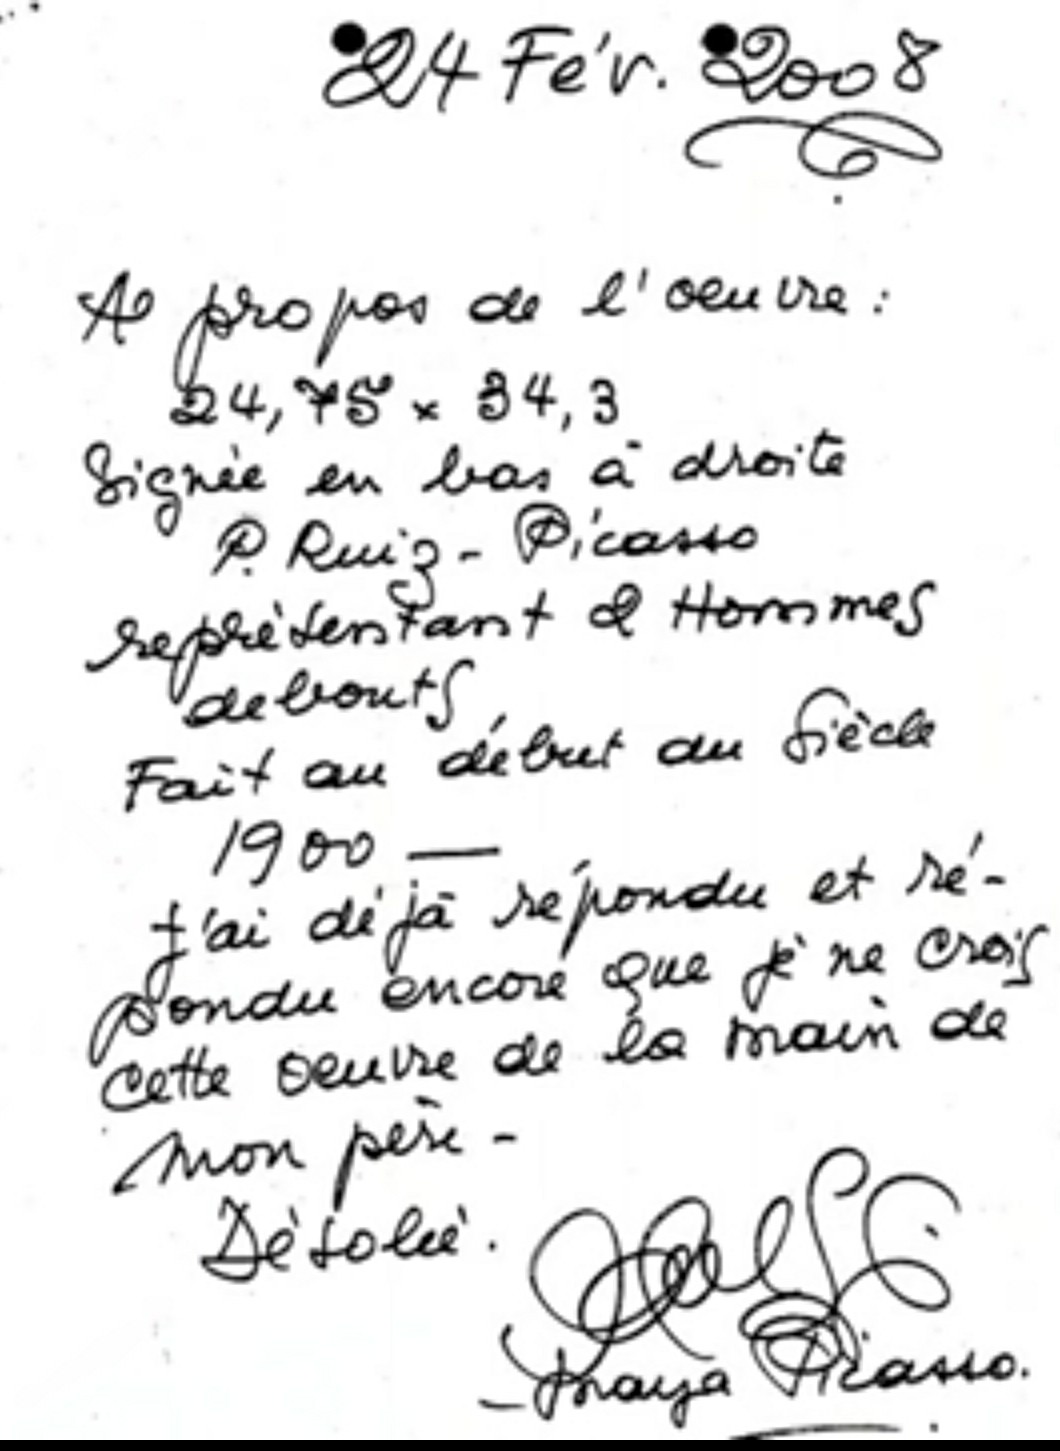 24 Fév. 2008
A propos de l'oeuvre :
24,75 x 34,3
Signée en bas à droite
P. Ruiz - Picasso
représentant 2 Hommes
debouts
Fait au début du Siècle
1900 —
J'ai déjà répondu et ré-
pondu encore que je ne crois
cette oeuvre de la main de
mon père -
Désolée.
- Maya Picasso.